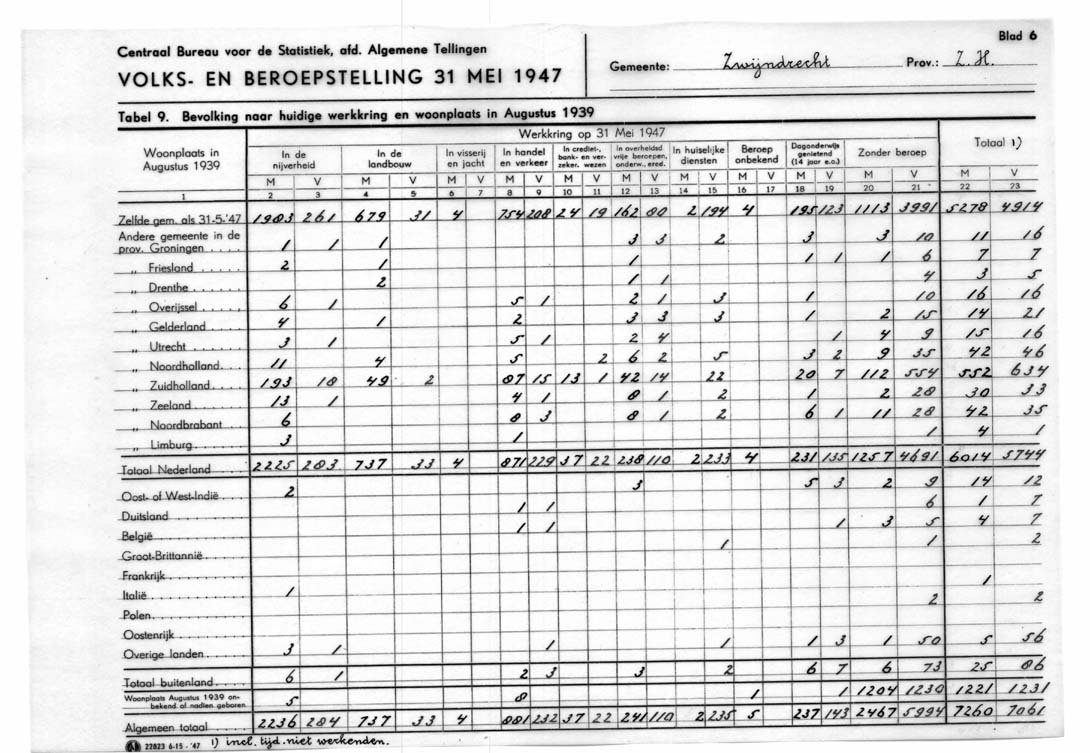 Centraal Bureau voor de Statistiek, afd. Algemene Tellingen
Blad 6
VOLKS- EN BEROEPSTELLING 31 MEI 1947
Gemeente: Zwijndrecht Prov.: Z.H.
Tabel 9. Bevolking naar huidige werkkring en woonplaats in Augustus 1939
Woonplaats in Augustus 1939
Werkkring op 31 Mei 1947
Totaal 1)
In de nijverheid In de landbouw In visserij en jacht In handel en verkeer In crediet-, bank- en verzeker. wezen In overheidsd. vrije beroepen, onderw., ered. In huiselijke diensten Beroep onbekend Dagonderwijs genietend (14 jaar e.o.) Zonder beroep
M V M V M V M V M V M V M V M V M V M V M V
1 2 3 4 5 6 7 8 9 10 11 12 13 14 15 16 17 18 19 20 21 22 23
Zelfde gem. als 31-5-'47 1983 261 679 31 4 754 208 24 19 162 80 2 194 4 195 123 1113 3991 5278 4914
Andere gemeente in de
prov. Groningen 1 1 1 3 3 2 3 3 10 11 16
„ Friesland 2 1 1 1 1 1 6 7 7
„ Drenthe 2 1 1 4 3 5
„ Overijssel 6 1 5 1 2 1 3 1 10 16 16
„ Gelderland 4 1 2 3 3 3 1 2 15 14 21
„ Utrecht 3 1 5 1 2 4 1 4 9 15 16
„ Noordholland 11 4 5 2 6 2 5 3 2 9 35 42 46
„ Zuidholland 193 18 49 2 87 15 13 1 42 14 22 20 7 112 554 552 634
„ Zeeland 13 1 4 1 8 1 2 1 2 28 30 33
„ Noordbrabant 6 8 3 8 1 2 6 1 11 28 42 35
„ Limburg 3 1 1 4 1
Totaal Nederland 2225 283 737 33 4 871 229 37 22 238 110 2 233 4 231 135 1257 4691 6014 5744
Oost- of West-Indië 2 3 5 3 2 9 14 12
Duitsland 1 1 6 1 7
België 1 1 1 3 5 4 7
Groot-Brittannië 1 1 2
Frankrijk
Italië 1 1
Polen 2 2
Oostenrijk
Overige landen 3 1 1 1 1 3 1 50 5 56
Totaal buitenland 6 1 2 3 3 2 6 7 6 73 25 86
Woonplaats Augustus 1939 on-
bekend of nadien geboren 5 8 1 1 1204 1230 1221 1231
Algemeen totaal 2236 284 737 33 4 881 232 37 22 241 110 2 235 5 237 143 2467 5994 7260 7061
22823 6-15-'47 1) incl. tijd. niet werkenden.